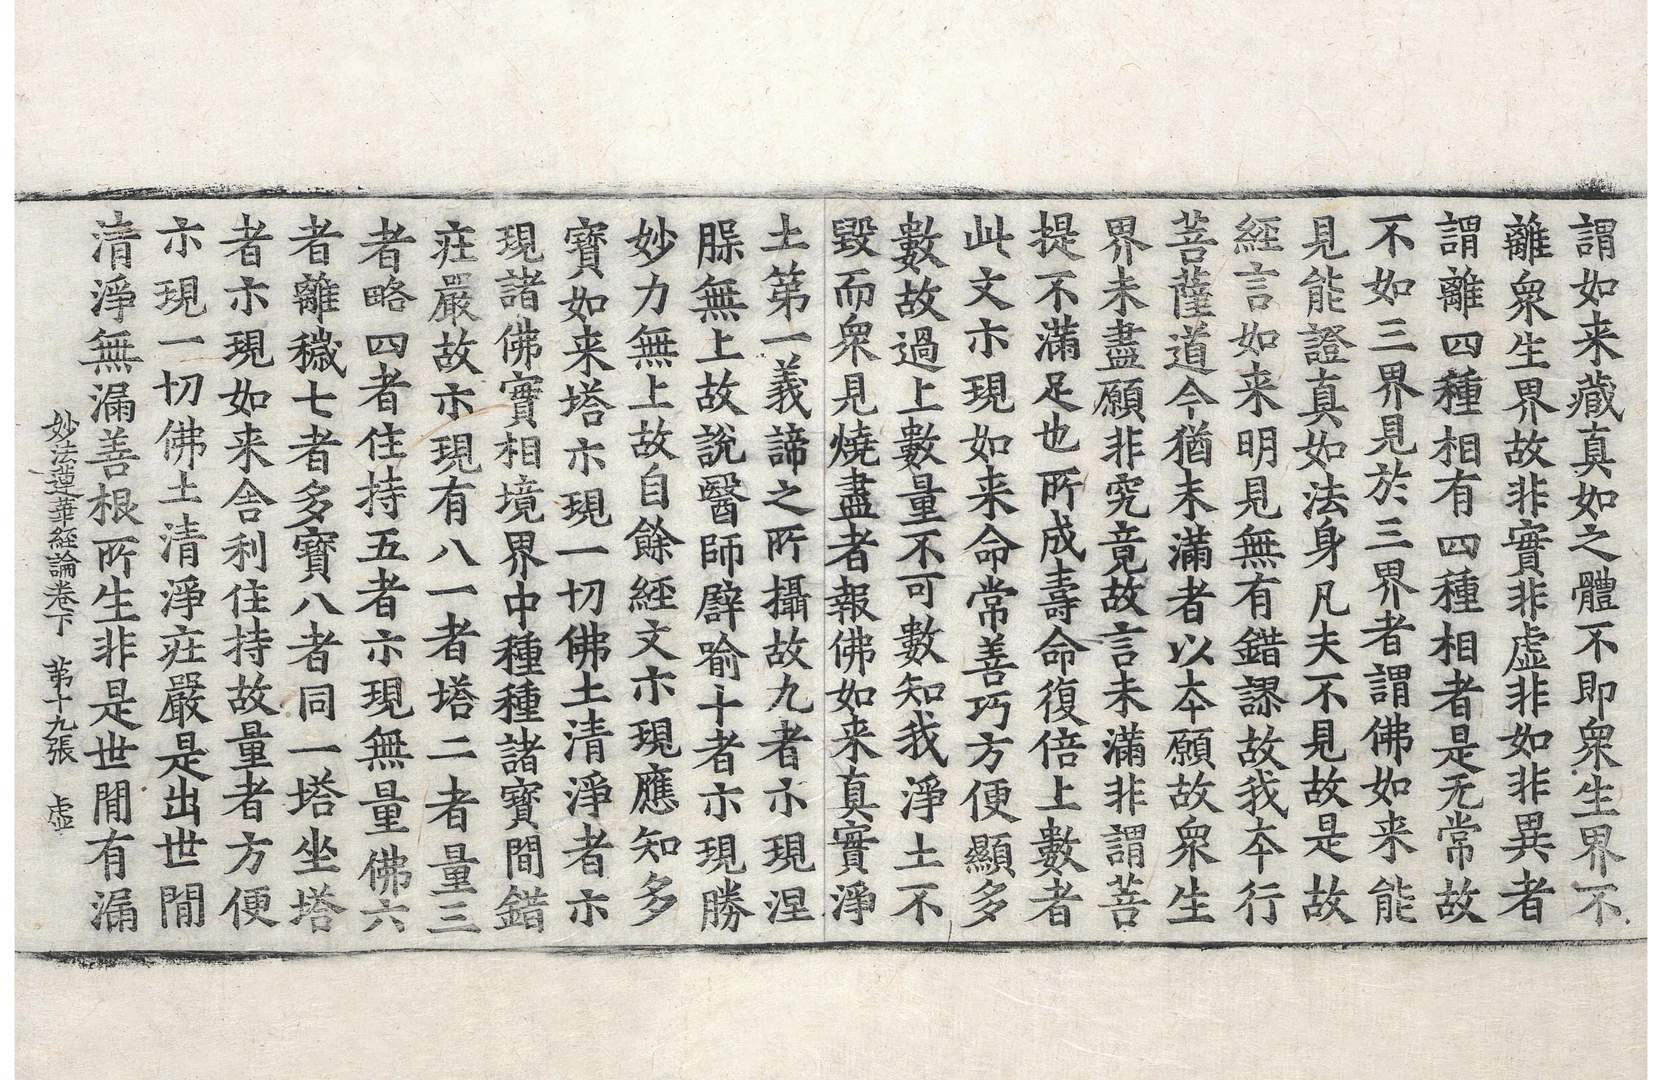 謂如来藏真如之體不即衆生界不
離衆生界故非實非虛非如非異者
謂離四種相有四種相者是无常故
不如三界見於三界者謂佛如来能
見能證真如法身凡夫不見故是故
經言如来明見無有錯謬故我夲行
菩薩道今猶未滿者以夲願故衆生
界未盡願非究竟故言未滿非謂菩
提不滿足也所成壽命復倍上數者
此文示現如来命常善巧方便顯多
數故過上數量不可數知我淨土不
毀而衆見燒盡者報佛如来真實淨
土第一義諦之所攝故九者示現涅
脲無上故說醫師廦喻十者示現勝
妙力無上故自餘經文示現應知多
寶如来塔示現一切佛土清淨者示
現諸佛實相境界中種種諸寶間錯
莊嚴故示現有八一者塔二者量三
者略四者住持五者示現無量佛六
者離穢七者多寶八者同一塔坐塔
者示現如来舍利住持故量者方便
示現一切佛土清淨莊嚴是出世閒
清淨無漏善根所生非是世閒有漏
妙法蓮華経論卷下　第十九張　虛